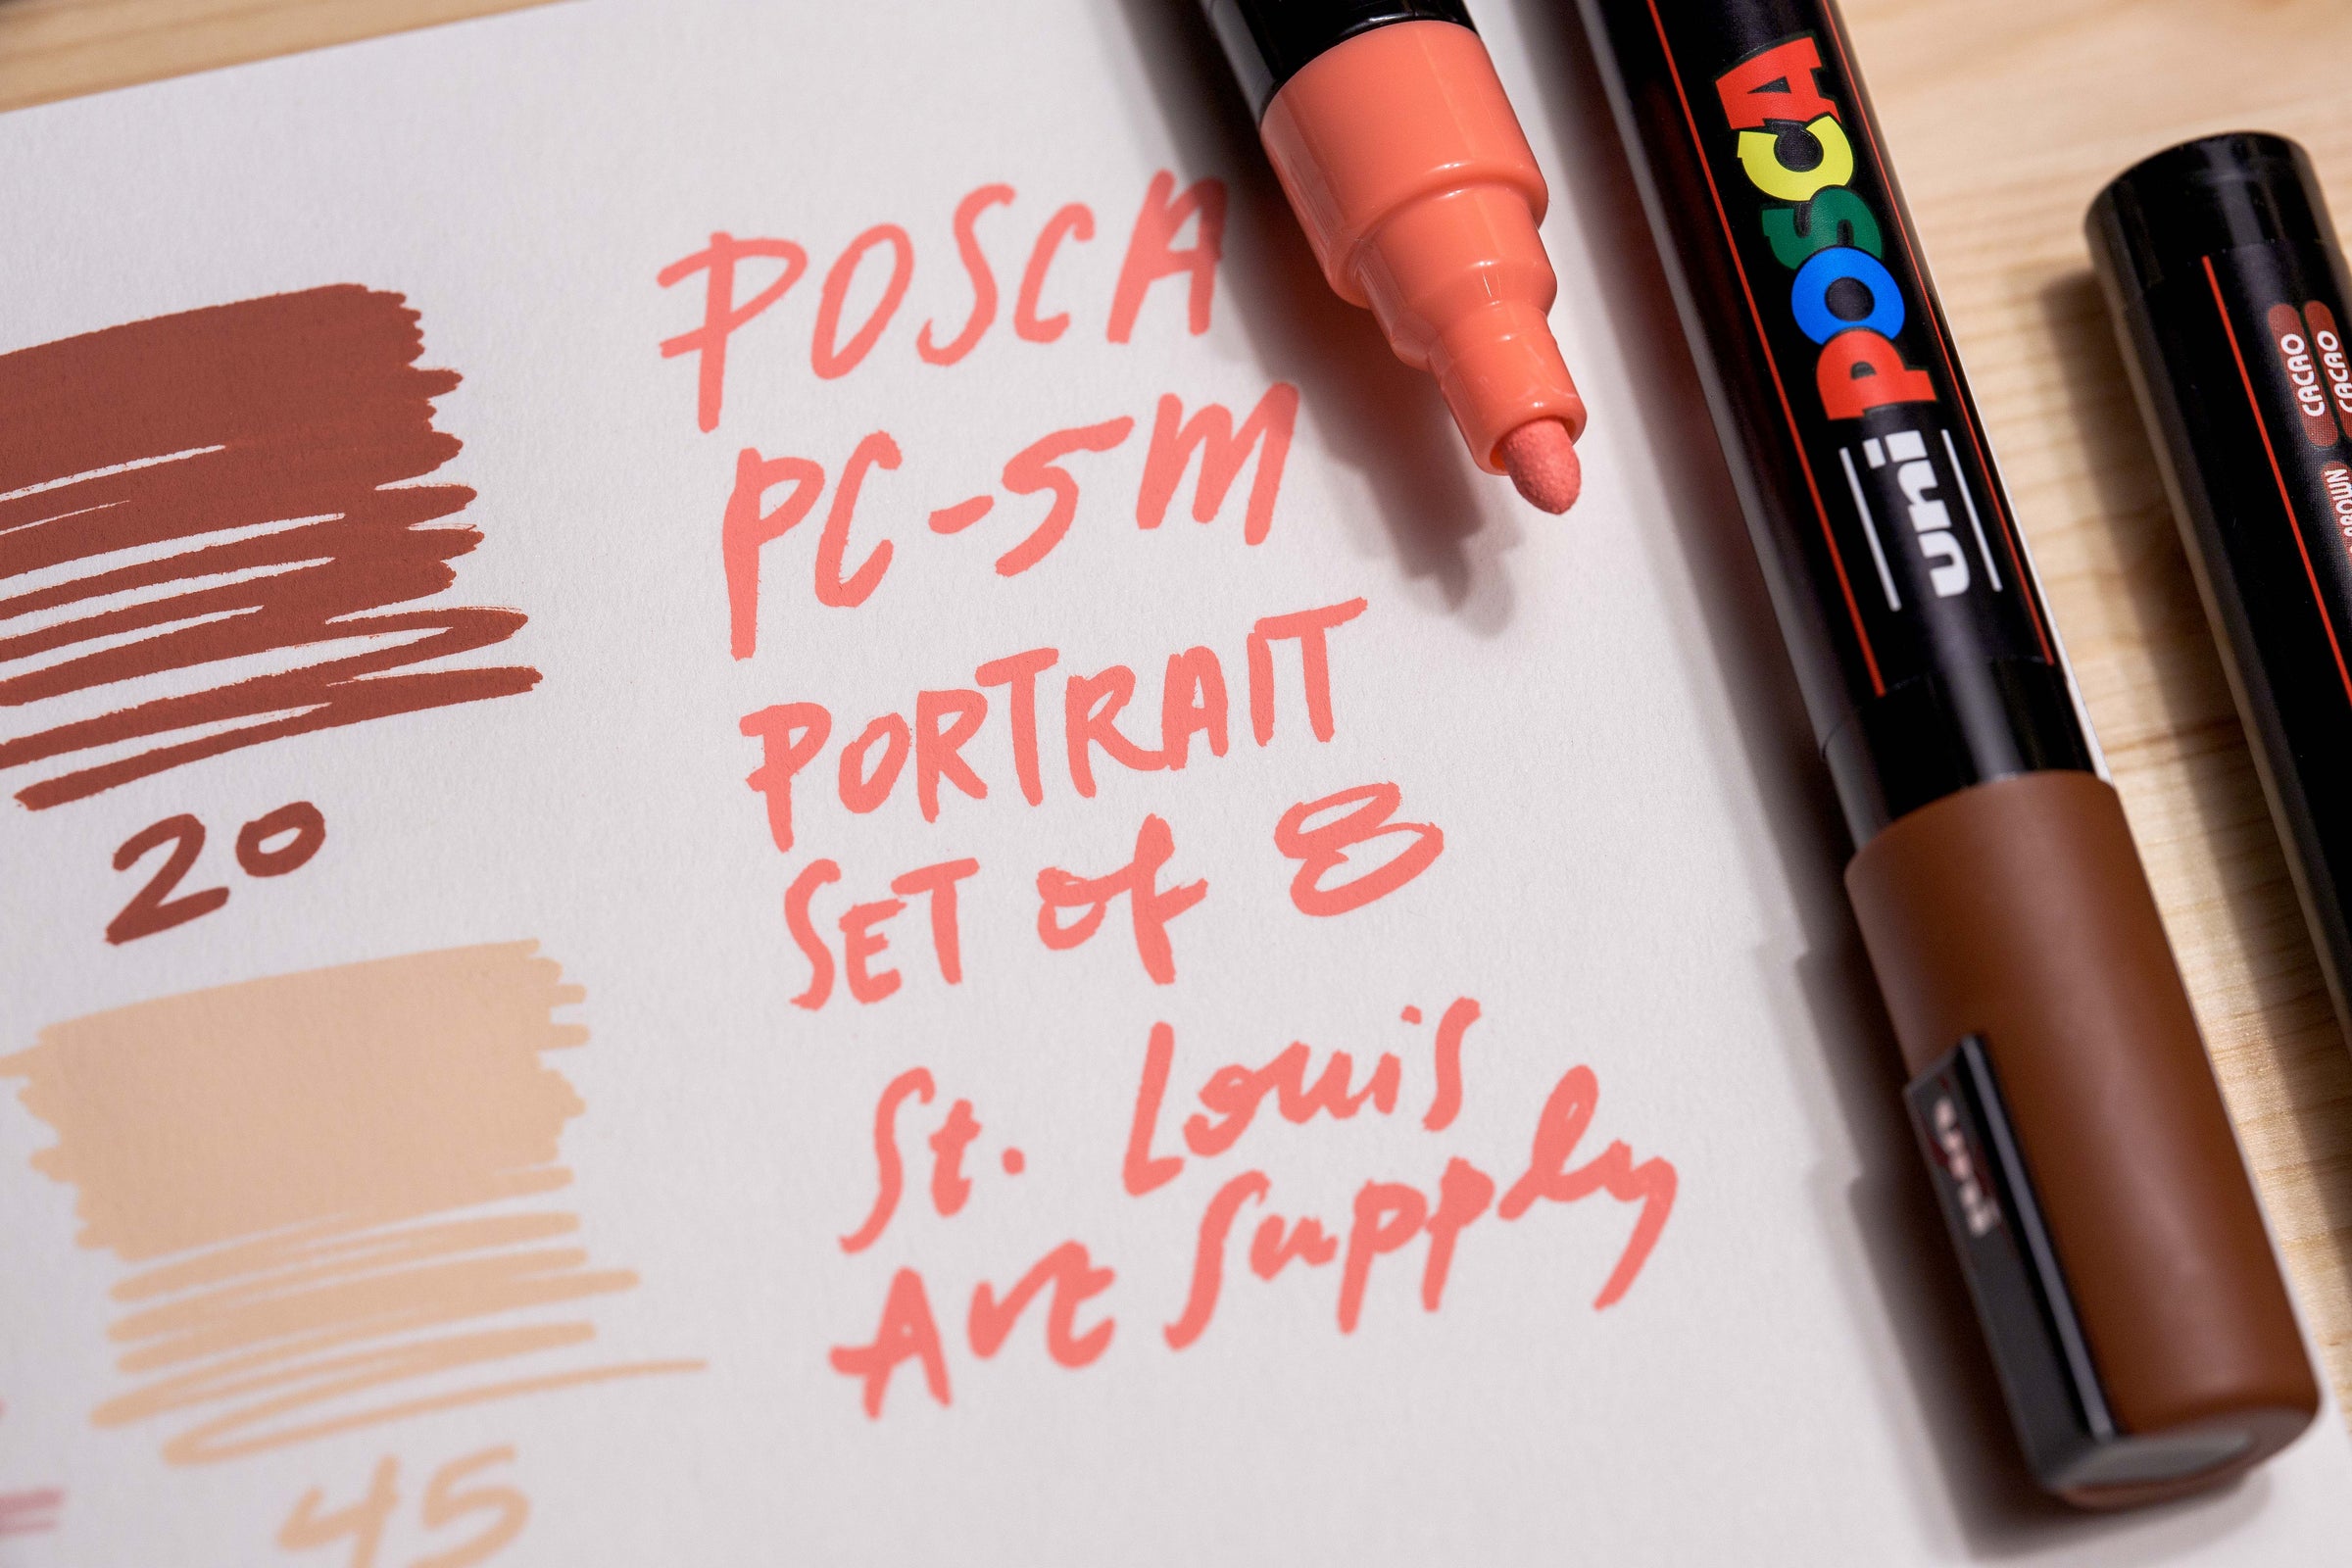 POSCA
PC-5M
PORTRAIT
SET of 8
St. Louis
Art Supply
20
45
uni POSCA
uni
CACAO
CACAO